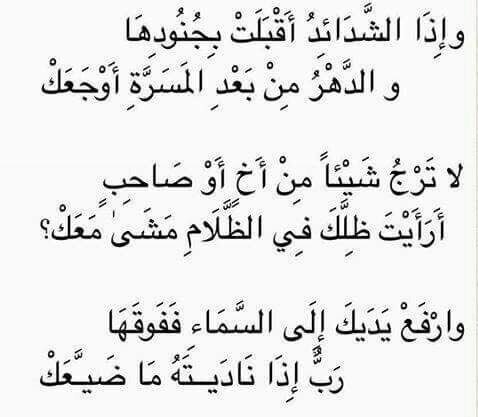 وإِذَا الشَّدَائدُ أَقْبَلَتْ بِجُنُودِهَا
و الدَّهْرُ مِنْ بَعْدِ المَسَرَّةِ أَوْجَعَكْ
لا تَرْجُ شَيْئاً مِنْ أَخٍ أَوْ صَاحِبٍ
أَرَأَيْتَ ظِلَّكَ فِي الظَّلَامِ مَشَىٰ مَعَكْ؟
وارْفَعْ يَدَيكَ إِلَى السَّمَاءِ فَفَوقَهَا
رَبٌّ إِذَا نَادَيـتَهُ مَا ضَيـَّعَكْ